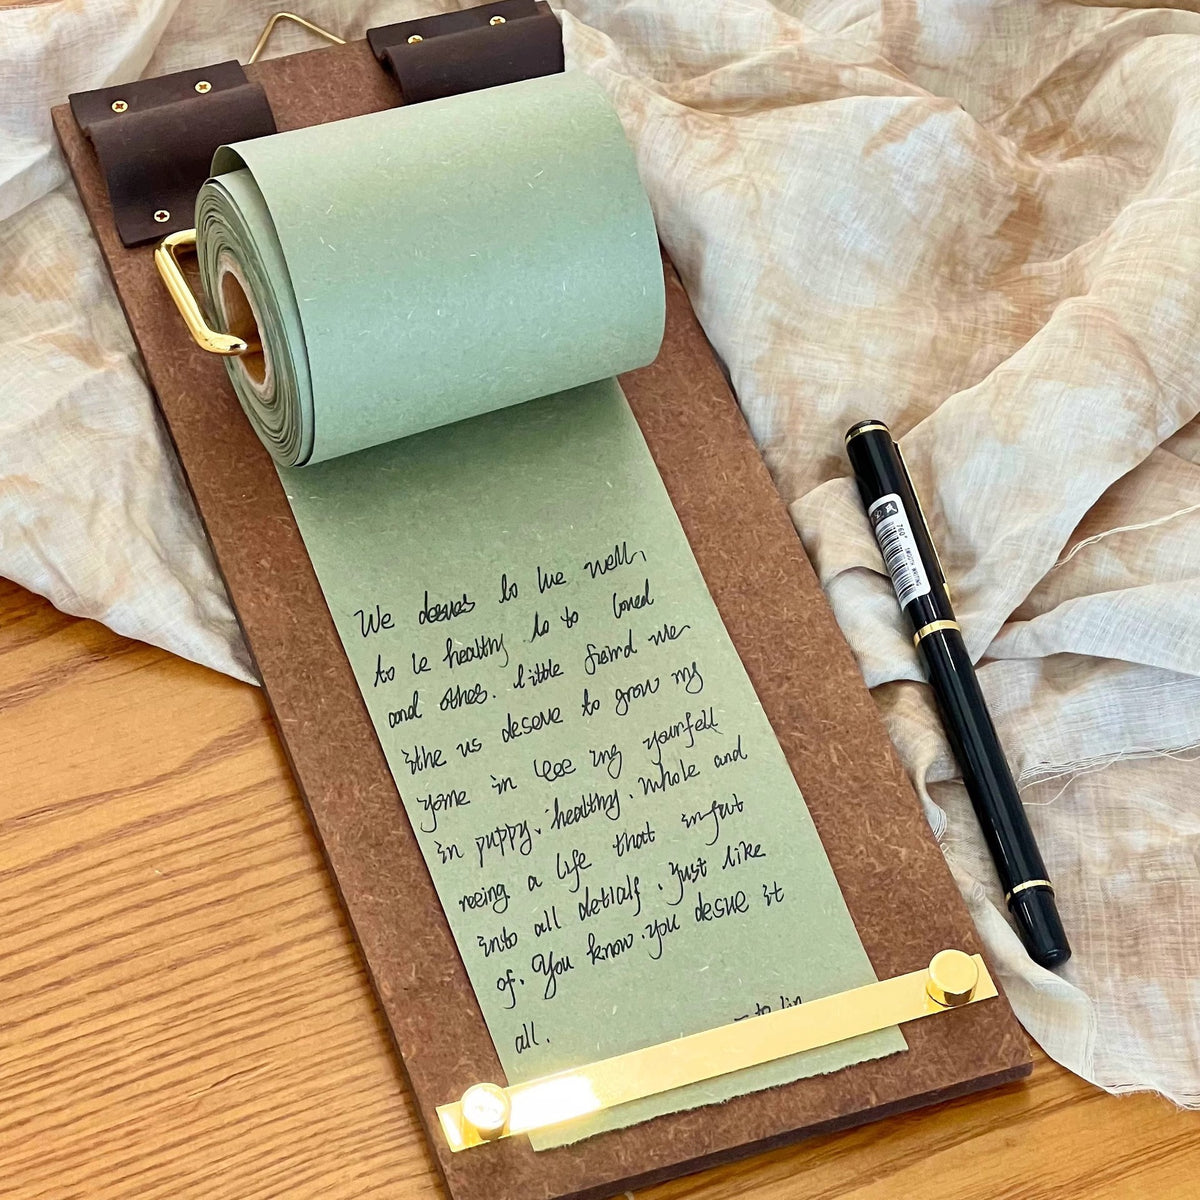 We deseves to live well,
to be healthy to to loved
and othes. little friend we
ithe us deseve to grow my
yome in ing yourfell
in puppy, healthy. whole and
reeing a life that infaut
into all detialf. just like
of. You know. you desue it
all.
- to lin
760°